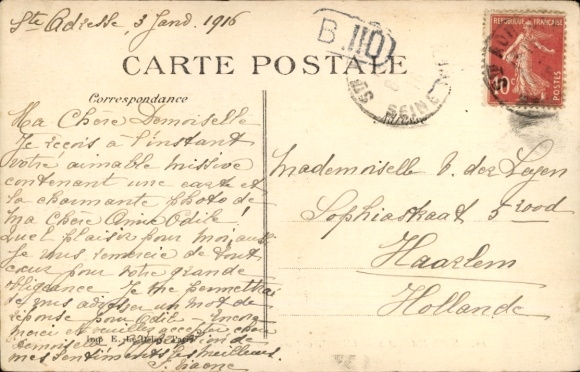 Ste Adresse 3 Janv. 1916
B.110
REPUBLIQUE FRANÇAISE
10c
POSTES
CARTE POSTALE
SEINE
Correspondance
Ma Chere Demoiselle
Je reçois à l'instant
votre aimable missive
contenant une carte et
la charmante photo de
Ma Chère Amie Odile!
Quel plaisir pour moi, aussi
Je vous remercie de tout
cœur pour votre grande
obligeance Je me permettrai
de vous adresser un mot de
réponse pour Odile. Encore
merci et veuillez accepter chère
Demoiselle de
mes sentiments les meilleurs.
Imp. E.
Mademoiselle v. der
Sophiastraat 5 rood
Haarlem
Hollande